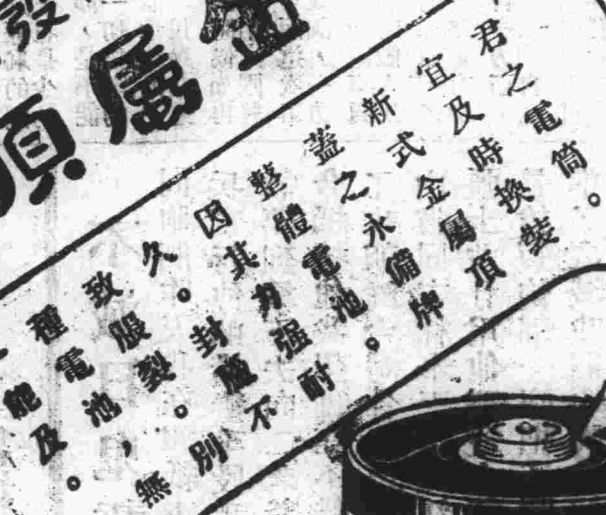 發
金屬頂
君之電筒。
宜及時換裝
新式金屬頂
蓋之永備牌
整體電池。
因其力强耐
久。封不
致脹裂。別
種電池，無
能及。